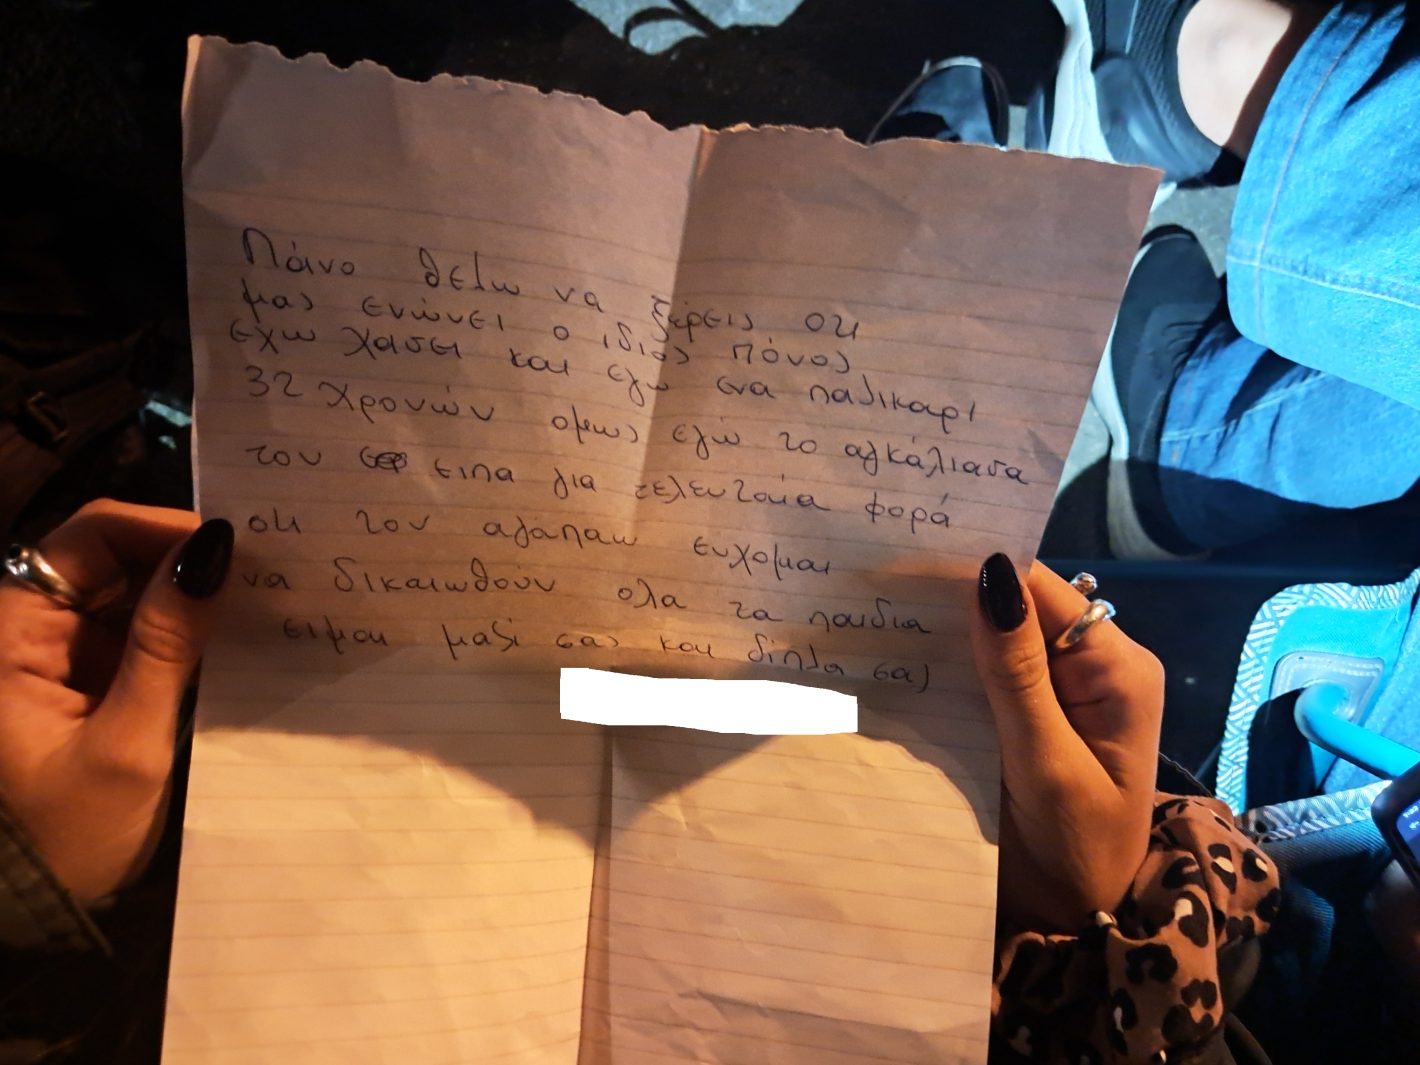 Πάνο θελω να ξέρεις οτι
μας ενώνει ο ιδιος πόνος
εχω χασει και εγω ενα παλικαρι
32 χρονών ομως εγώ το αγκάλιασα
του ειπα για τελευταία φορά
οτι τον αγάπαω ευχομαι
να δικαιωθούν ολα τα παιδια
ειμαι μαζί σας και δίπλα σας